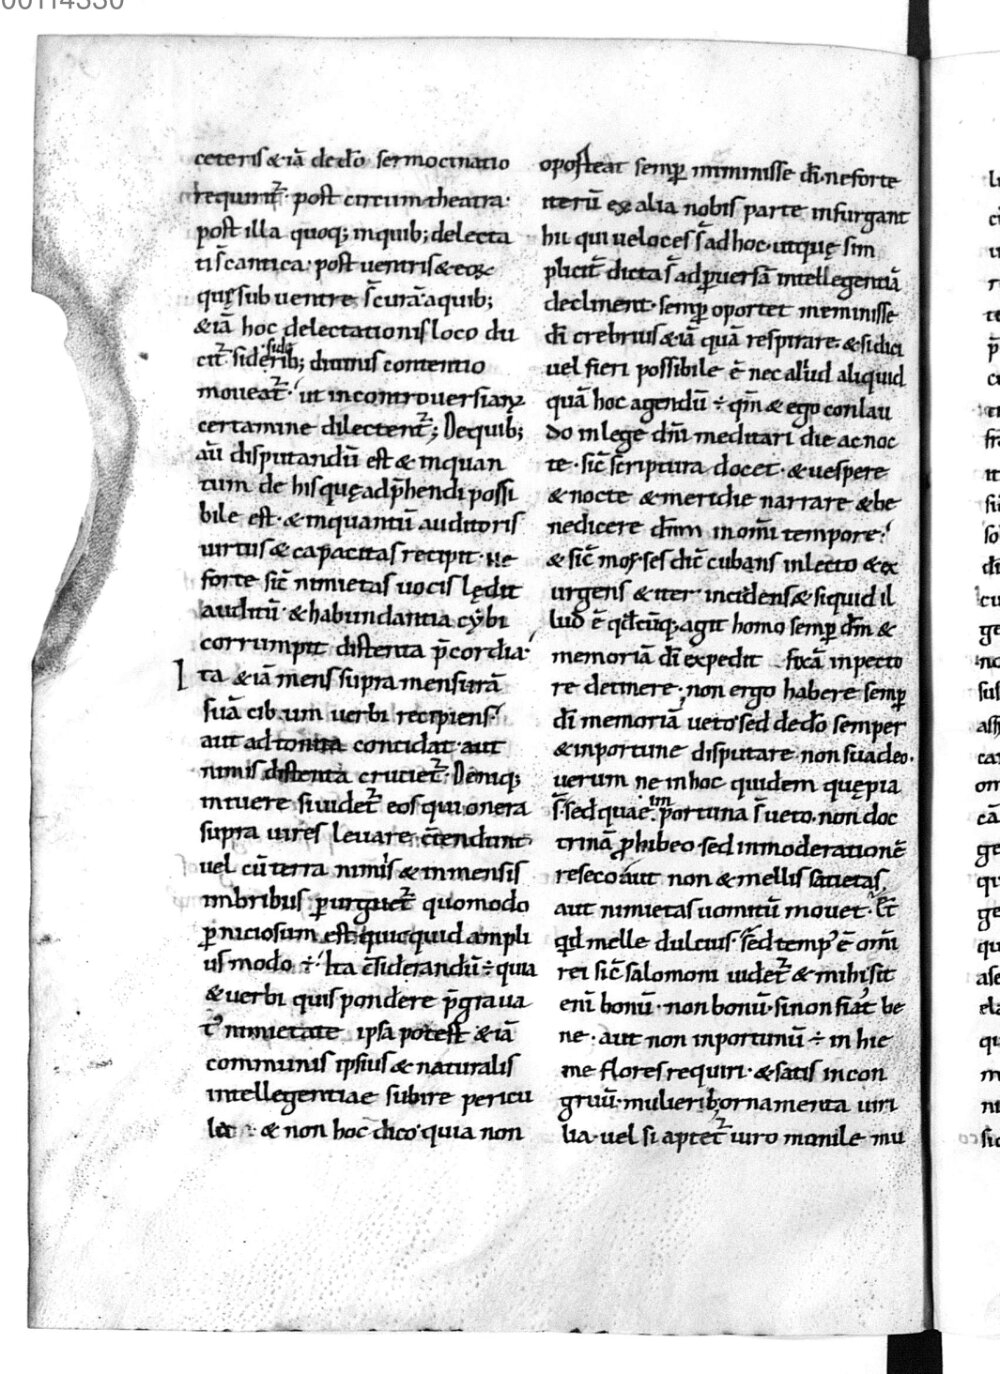 00114330
ceteris & iā de dō sermocinatio
requirit᷑· post circum theatra·
post illa quoq; in quib; delecta
ti s̄ cantica· post uentris & eoꝝ
quę sub uentre s̄ curā a quib;
& iā hoc delectationis loco du
cit᷑ siderib; diuinis contentio
moueat᷑· ut in controuersiarꝝ
certamine dilectent᷑; De quib;
aū disputandū est & in quan
tum de his quę adp̄hendi possi
bile est· & in quantū auditoris
uirtus & capacitas recipit· ne
forte sic̄ nimietas uocis lędit
auditū· & habundantia cybi
corrumpit distenta p̄cordia·
Ita & iā mens supra mensurā
suā cibum uerbi recipiens·
aut ad tonita concidat· aut
nimis distenta cruciet᷑· Deniq;
intuere si uidet᷑ eos qui onera
supra uires leuare c̄tendunt·
uel cū terra nimis & inmensis
imbribus ꝑurguet᷑ quomodo
ꝑniciosum est quicquid ampli
us modo ÷· Ita c̄siderandū ÷ quia
& uerbi quis pondere p̄graua
t᷑ nimietate ipsa potest & iā
communis ipsius & naturalis
intellegentiae subire pericu
& non hoc dico quia non
oporteat semꝑ miminisse dī· ne forte
iterū ex alia nobis parte insurgant
hii qui ueloces s̄ ad hoc· ut quę sim
plicit̄ dicta s̄ ad ꝑuersā intellegentiā
declinent· semꝑ oportet meminisse
dī crebrius & iā quā respirare· & si dici
uel fieri possibile ē nec aliud aliquid
quā hoc agendū ÷ qm̄ & ego conlau
do in lege dn̄i meditari die ac noc
te· sic̄ scriptura docet· & uespere
& nocte & meridie narrare & be
nedicere dn̄m in omī tempore·
& sic̄ moyses dic̄ cubans in lecto & ex
urgens & iter incidens & siquid il
lud ē qđcūq; agit homo semꝑ dm̄ &
memoriā dī expedit fixā in pecto
re detinere; non ergo habere semꝑ
dī memoriā ueto· sed de dō semper
& inportune disputare non suadeo·
uerum ne in hoc quidem quę pia
s̄· sed quae inportuna s̄ ueto· non doc
trinā ꝓhibeo· sed inmoderationē
reseco· aut non & mellis satietas
aut nimietas uomitū mouet· Et
qđ melle dulcius· sed temp᷒ ē omī
rei sic̄ salomoni uidet᷑ & mihi sit
enī bonū· non bonū· si non fiat be
ne· aut non inportunū ÷ in hie
me flores requiri· & satis incon
gruū· mulierib; ornamenta uiri
lia· uel si aptet᷑ uiro monile mu